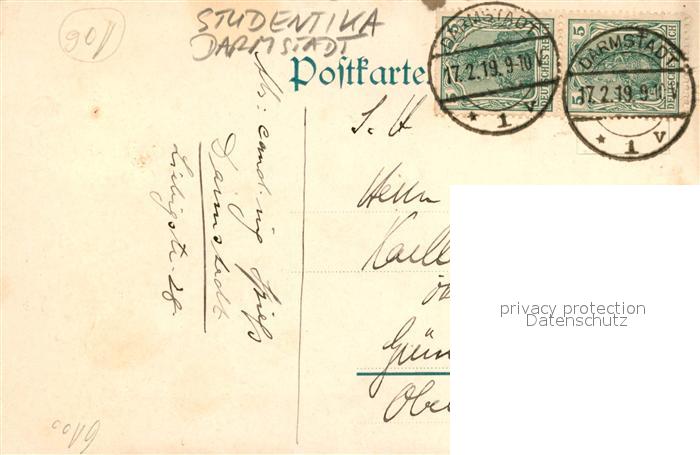 106
STUDENTIKA
DARMSTADT
Postkarte
DARMSTADT
17.2.19. 9-10V
* 1 v
DEUTSCHES REICH
DARMSTADT
17.2.19. 9-10V
* 1 v
5
DEUTSCHES REICH
Abs: cand. ing.
Darmstadt
Liebigstr. 28.
S. H
Herrn
Grün
Obe
privacy protection
Datenschutz